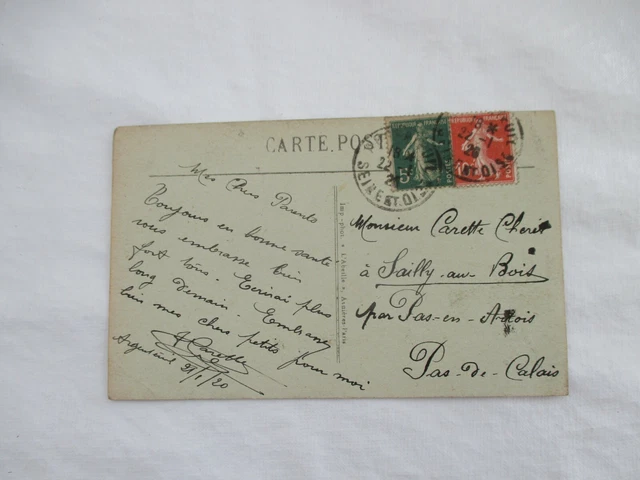 CARTE POS
SEINE ET OISE
5c
Mes Chers Parents
Toujours en bonne santé
vous embrasse bien
fort tous. Ecrirai plus
long Demain. Embrassez
bien mes chers petits pour moi
A Carette
Argenteuil 21/1/20
Imp.-phot. « L'Abeille », Asnières-Paris
Monsieur Carette Chéret
à Sailly-au-Bois
par Pas-en-Artois
Pas-de-Calais